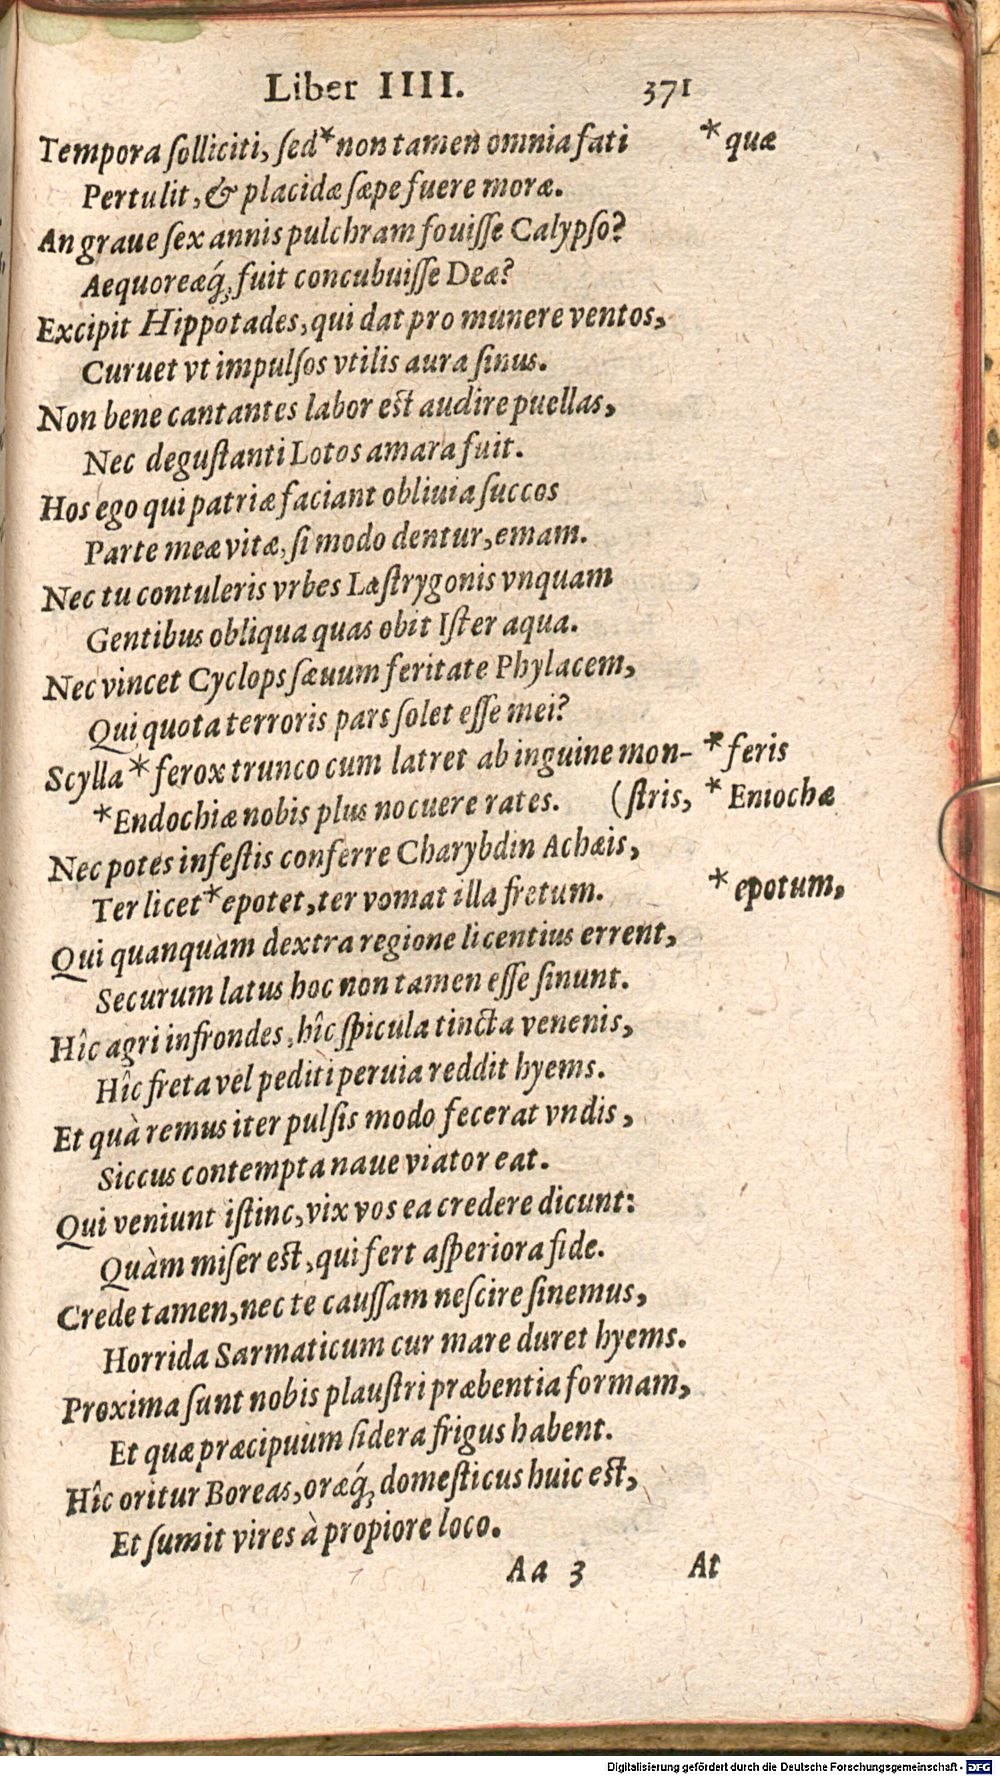 Liber IIII. 371
Tempora ſolliciti, ſed * non tamen omnia fati * quæ
Pertulit, & placidæ ſæpe fuere moræ.
An graue ſex annis pulchram fouiſſe Calypſo?
Aequoreæq́; fuit concubuiſſe Deæ?
Excipit Hippotades, qui dat pro munere ventos,
Curuet vt impulſos vtilis aura ſinus.
Non bene cantantes labor est audire puellas,
Nec deguſtanti Lotos amara fuit.
Hos ego qui patriæ faciant obliuia ſuccos
Parte meæ vitæ, ſi modo dentur, emam.
Nec tu contuleris vrbes Læſtrygonis vnquam
Gentibus obliqua quas obit Iſter aqua.
Nec vincet Cyclops ſæuum feritate Phylacem,
Qui quota terroris pars ſolet eſſe mei?
Scylla * ferox trunco cum latret ab inguine mon- * feris
* Endochiæ nobis plus nocuere rates. (ſtris, * Eniochæ
Nec potes infeſtis conferre Charybdin Achæis,
Ter licet * epotet, ter vomat illa fretum. * epotum,
Qui quanquàm dextra regione licentius errent,
Securum latus hoc non tamen eſſe ſinunt.
Hîc agri infrondes, hîc ſpicula tincta venenis,
Hîc freta vel pediti peruia reddit hyems.
Et quà remus iter pulſis modo fecerat vndis,
Siccus contempta naue viator eat.
Qui veniunt iſtinc, vix vos ea credere dicunt:
Quàm miſer est, qui fert aſperiora fide.
Crede tamen, nec te cauſſam neſcire ſinemus,
Horrida Sarmaticum cur mare duret hyems.
Proxima ſunt nobis plauſtri præbentia formam,
Et quæ præcipuum ſidera frigus habent.
Hîc oritur Boreas, oræq́; domeſticus huic est,
Et ſumit vires à propiore loco.
Aa 3 At
Digitalisierung gefördert durch die Deutsche Forschungsgemeinschaft - DFG